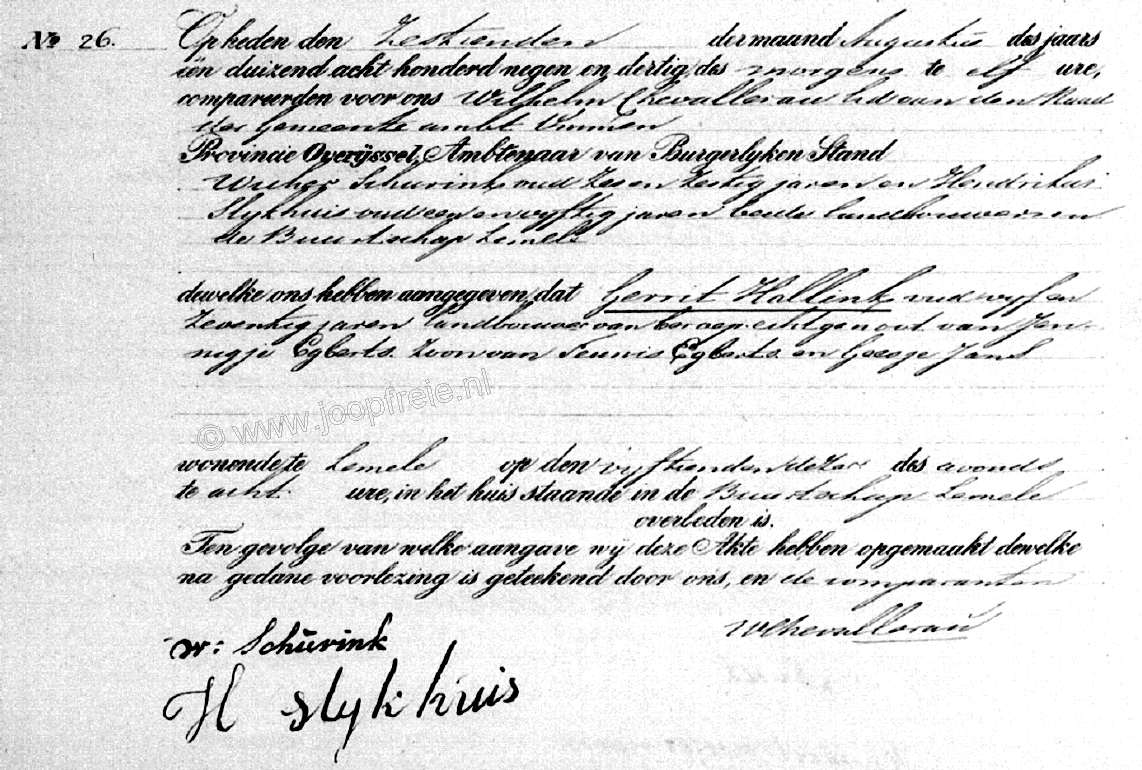 No 26. Op heden den Zestienden der maand Augustus des jaars
een duizend acht honderd negen en dertig des morgens te elf ure,
compareerden voor ons Wilhelm Chevallerau lid van den Raad
der Gemeente ambt Ommen
Provincie Overijssel, Ambtenaar van Burgerlyken Stand
Wicher Schurink oud Zes en Zestig jaren en Hendrikus
Slykhuis oud een en vyftig jaren beide landbouwers in
de Buurtschap Lemele
dewelke ons hebben aangegeven, dat Gerrit Hallink oud vyf en
Zeventig jaren landbouwer van beroep echtgenoot van Jen-
negje Egberts. Zoon van Teunis Egberts en Geesje Jans
© www.joopfreie.nl
wonende te Lemele op den vyftienden dezer des avonds
te acht ure, in het huis staande in de Buurtschap Lemele
overleden is.
Ten gevolge van welke aangave wy deze Akte hebben opgemaakt dewelke
na gedane voorlezing is geteekend door ons, en de comparanten
WChevallerau
W: Schurink
H Slykhuis